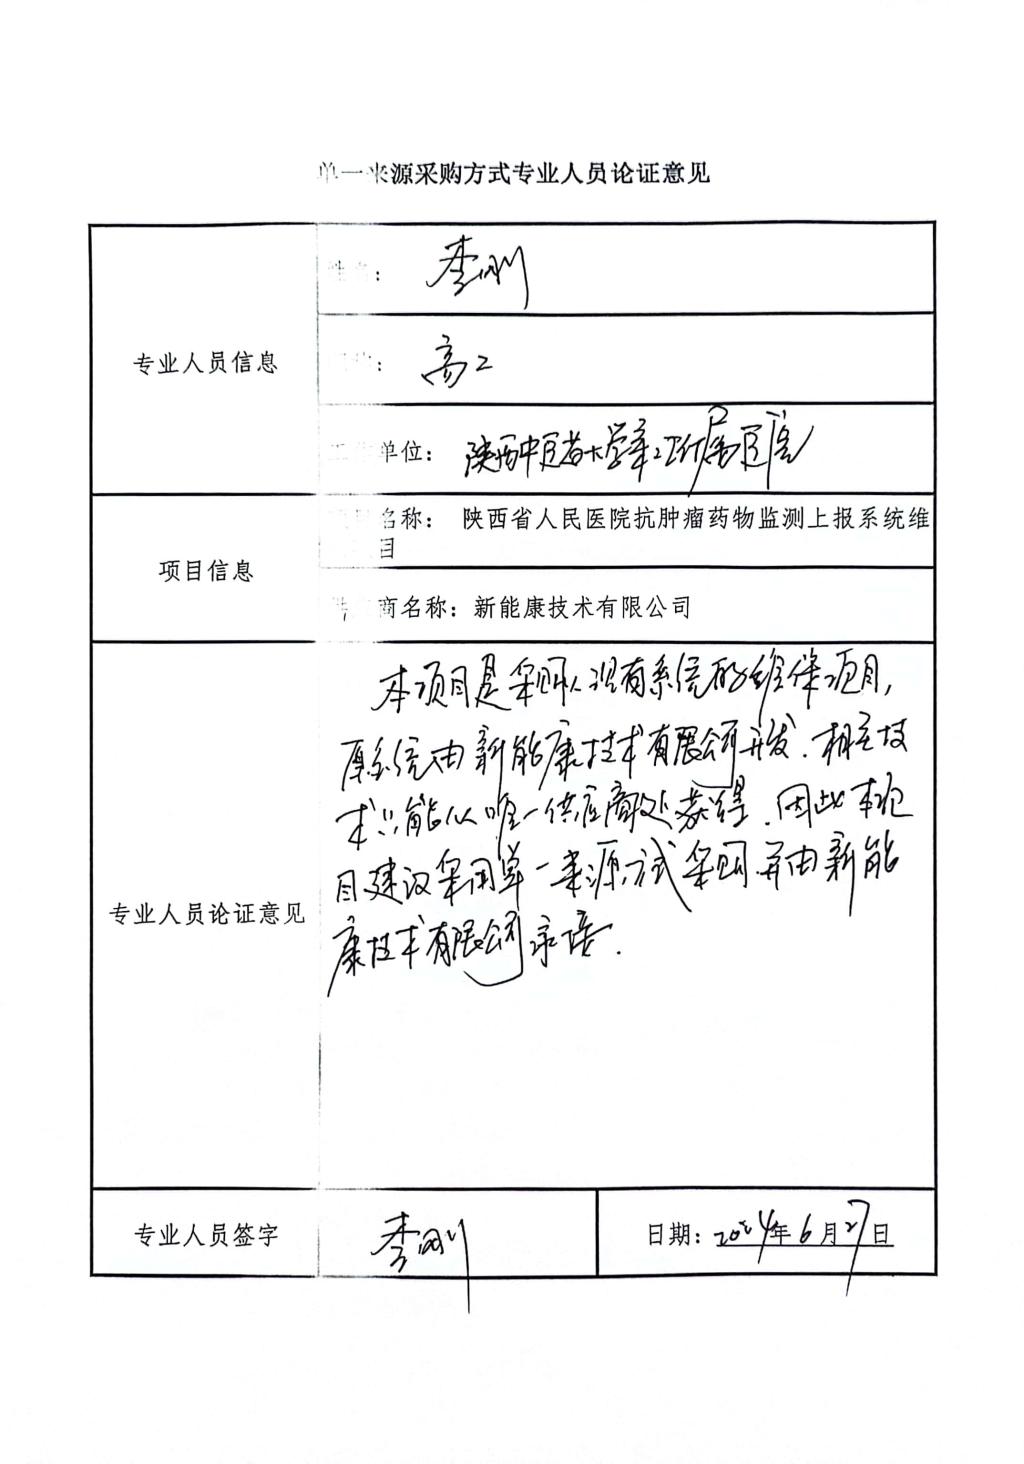 单一来源采购方式专业人员论证意见
专业人员信息
姓名： 李刚
职称： 高工
工作单位： 陕西中医药大学第二附属医院
项目信息
项目名称： 陕西省人民医院抗肿瘤药物监测上报系统维
项目
供应商名称：新能康技术有限公司
专业人员论证意见
本项目是采购人没有系统的维保项目，
原系统由新能康技术有限公司开发．相关技
术只能从唯一供应商处获得．因此本项
目建议采用单一来源方式采购．并由新能
康技术有限公司承接．
专业人员签字
李刚
日期：2024年6月27日